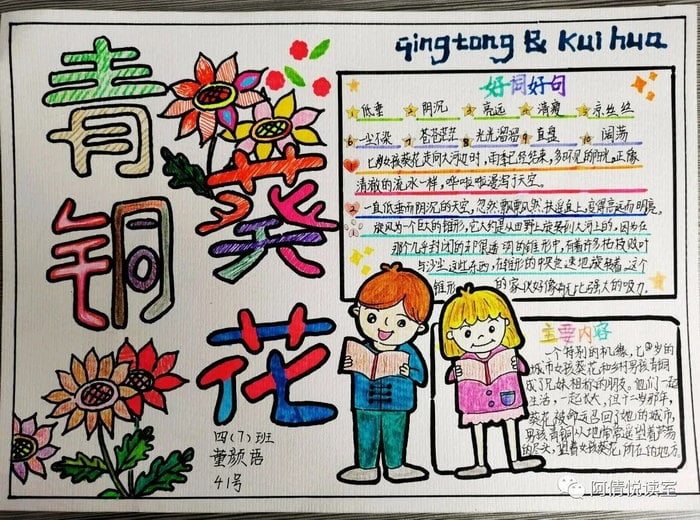 青铜
葵花
Qingtong & Kuihua
好词好句
1 低垂 2 阴沉 3 亮远 4 清爽 5 凉丝丝
6 一尘不染 7 苍苍茫茫 8 水光溜溜 9 直盘 10 阔荡
七岁女孩葵花走向大河边时,雨季已经结束,多日不见的阳光,正像
清澈的流水一样,哗啦啦漫泻于天空。
2 一直低垂而阴沉的天空,忽然飘飘然扶摇直上,变得高远而明亮。
旋风为一个巨大的锥形,它大约是从田野上旋转到大河上的,因为在
那个几乎封闭的却很透明的锥形中,有着许多枯枝败叶
与沙尘,这些东西,在锥形的中央急速地旋转着。这个
锥形 的家伙好像有比强大的吸力。
主要内容
一个特别的机缘,七岁的
城市女孩葵花和乡村男孩青铜
成了兄妹相称的朋友。他们一起
生活,一起长大,但十二岁那年,
葵花被命运召回了她的城市,
男孩青铜从此常常遥望着芦荡
的尽头,望着女孩葵花所在的地方。
四(7)班
董颜语
41号
阿倩悦读室